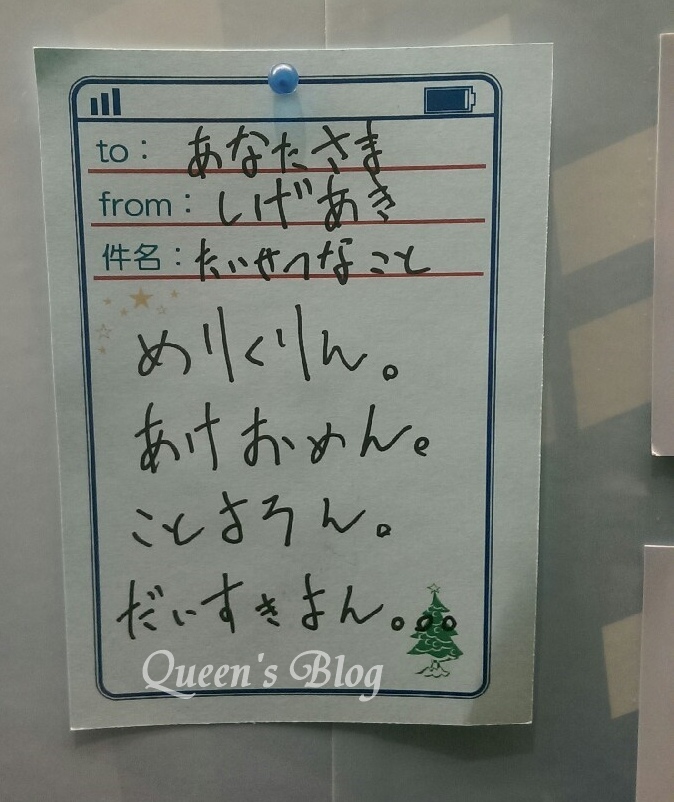 to： あなたさま
from： しげあき
件名： たいせつなこと
めりくりん。
あけおめん。
ことよろん。
だいすきよん。。。
Queen's Blog